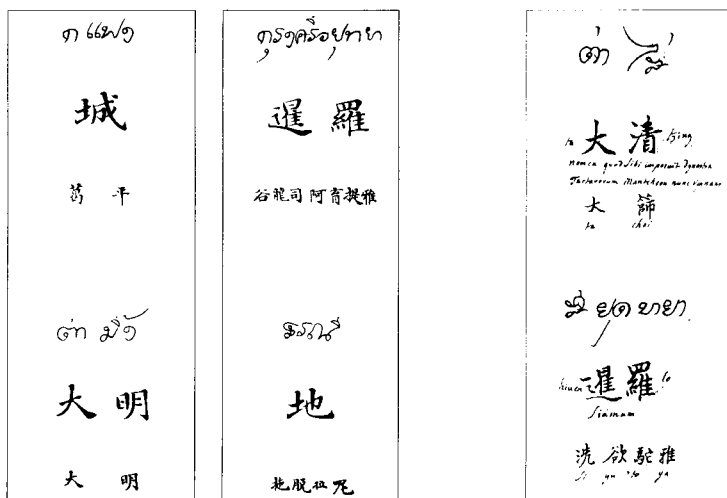 กแพง
城
葛 平
ต่า มีง
大 明
大 明
กุรงศรีอยุทยา
暹 羅
谷龍司阿育提雅
ธรณี
地
脫拉呢
ต่า
ta 大 清 tsing
nomen quod sibi imposuit dynastia
Tartarorum Mantcheou nunc
大 篩
ta chai
暹羅 lo
Siamum
洗 欲 駝 雅
si yu to ya